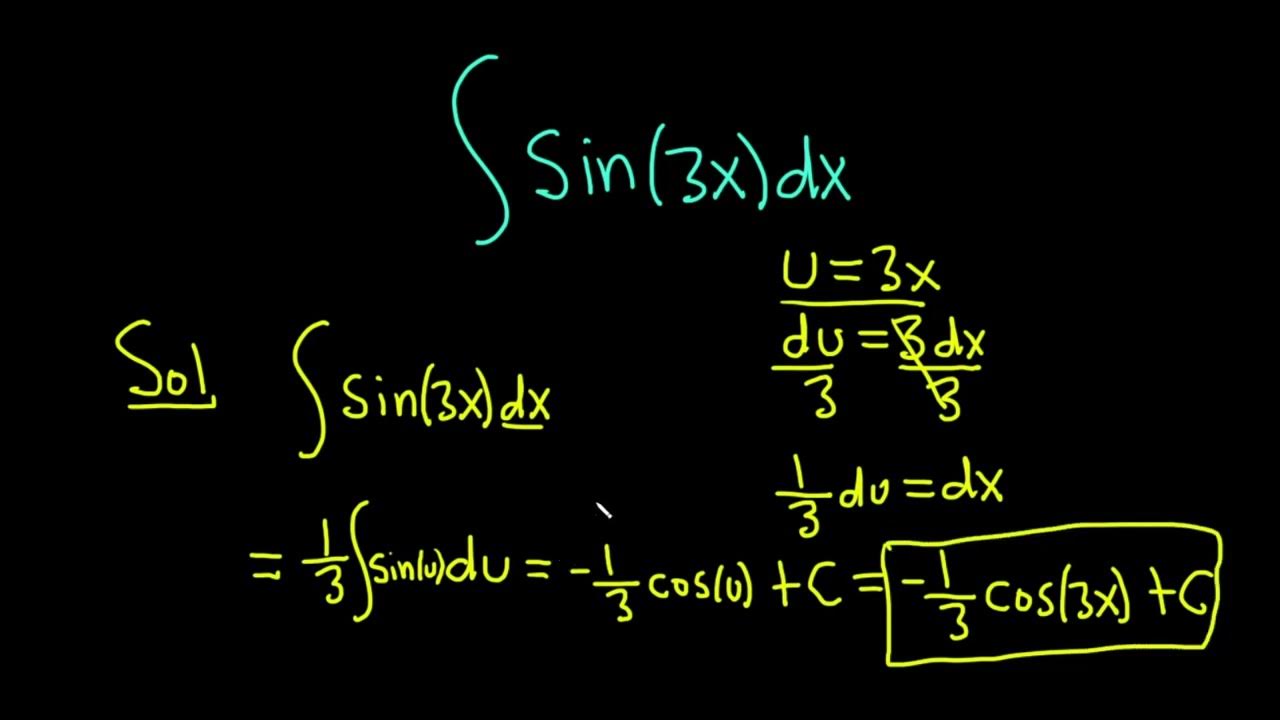 ∫ Sin(3x) dx
U = 3x
du/3 = 3dx/3
Sol ∫ Sin(3x) dx
1/3 du = dx
= 1/3 ∫ sin(u) du = -1/3 cos(u) + C = -1/3 cos(3x) + C